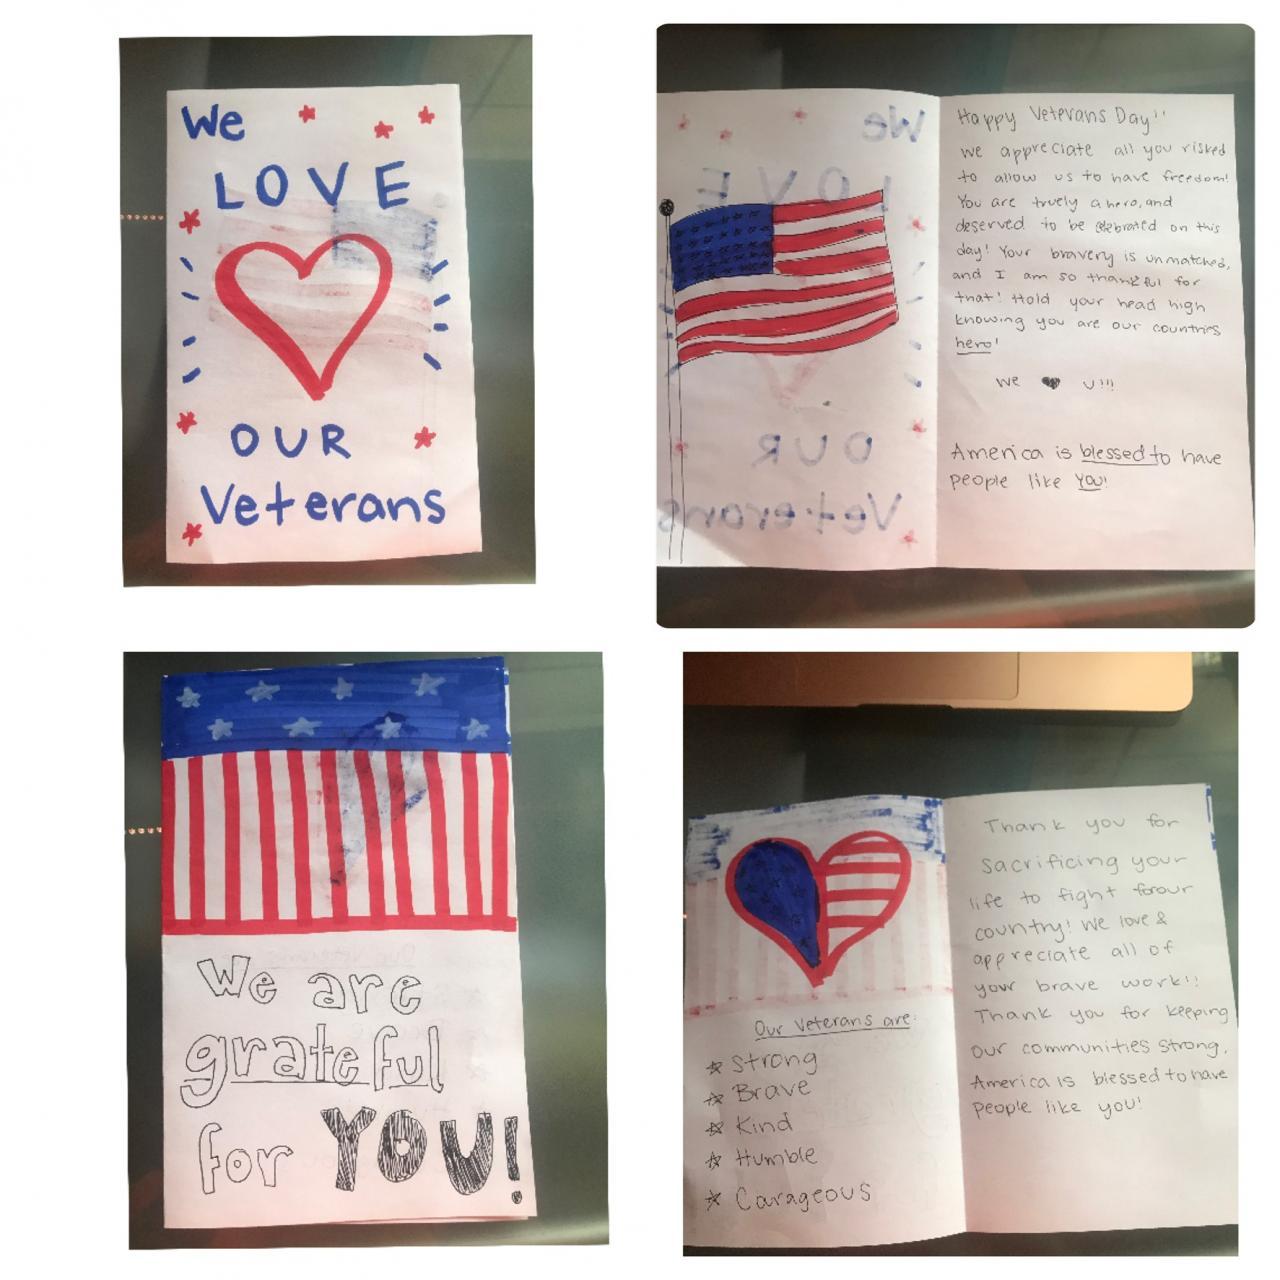 We
LOVE
OUR
Veterans
Happy Veterans Day!!
We appreciate all you risked
to allow us to have freedom!
You are truely a hero, and
deserved to be celebrated on this
day! Your bravery is unmatched,
and I am so thankful for
that! Hold your head high
knowing you are our countries
hero!
We ♥ U!!!
America is blessed to have
people like you!
We are
grateful
for YOU!
Our Veterans are:
☆ Strong
☆ Brave
☆ Kind
☆ Humble
☆ Carageous
Thank you for
sacrificing your
life to fight for our
country! We love &
appreciate all of
your brave work!!
Thank you for keeping
our communities strong,
America is blessed to have
people like you!